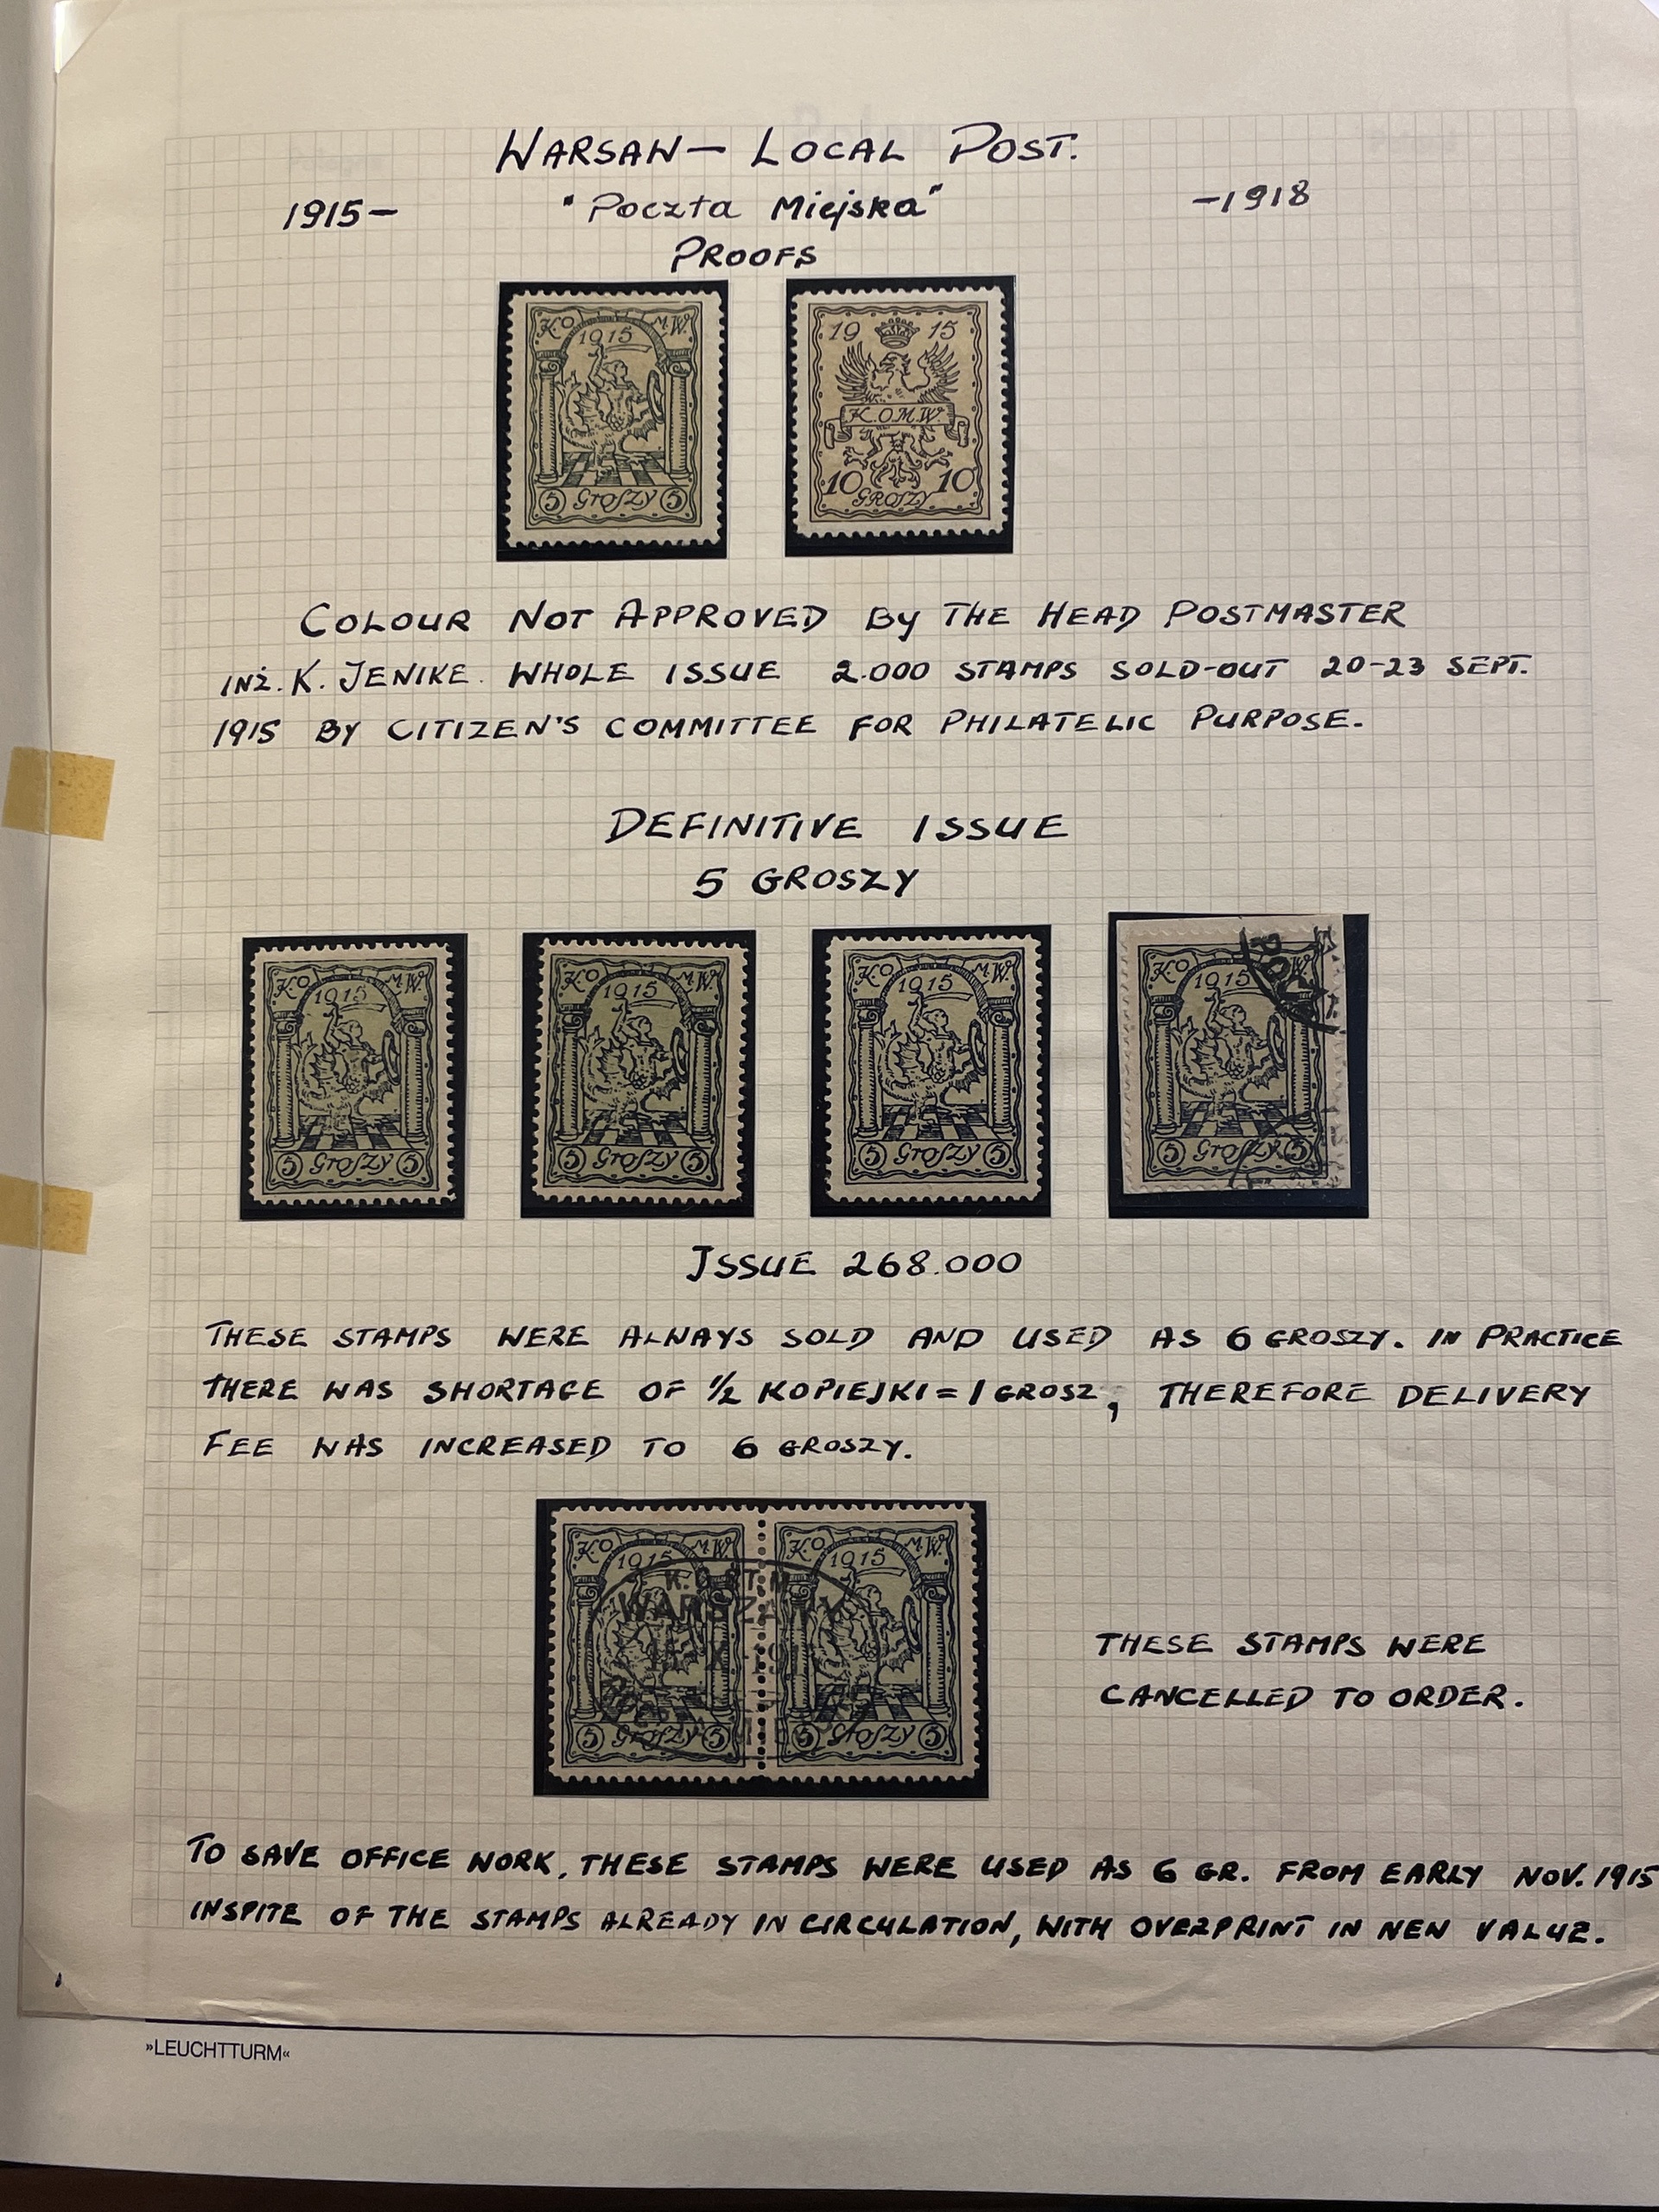 WARSAW — LOCAL POST.
1915— "Poczta Miejska" —1918
PROOFS
K.O. M.W.
1915
5 GROSZY 5
19 15
K.O.M.W.
10 10
GROSZY
COLOUR NOT APPROVED BY THE HEAD POSTMASTER
INŻ. K. JENIKE. WHOLE ISSUE 2.000 STAMPS SOLD-OUT 20-23 SEPT.
1915 BY CITIZEN'S COMMITTEE FOR PHILATELIC PURPOSE.
DEFINITIVE ISSUE
5 GROSZY
K.O. M.W.
1915
5 GROSZY 5
K.O. M.W.
1915
5 GROSZY 5
K.O. M.W.
1915
5 GROSZY 5
K.O. W.
1915
5 GROSZY 5
ISSUE 268.000
THESE STAMPS WERE ALWAYS SOLD AND USED AS 6 GROSZY. IN PRACTICE
THERE WAS SHORTAGE OF 1/2 KOPIEJKI = 1 GROSZ, THEREFORE DELIVERY
FEE WAS INCREASED TO 6 GROSZY.
K.O. M.W. K.O. M.W.
1915 1915
WARSZAWY
5 GROSZY 5 5 GROSZY 5
THESE STAMPS WERE
CANCELLED TO ORDER.
TO SAVE OFFICE WORK, THESE STAMPS WERE USED AS 6 GR. FROM EARLY NOV. 1915
INSPITE OF THE STAMPS ALREADY IN CIRCULATION, WITH OVERPRINT IN NEW VALUE.
»LEUCHTTURM«